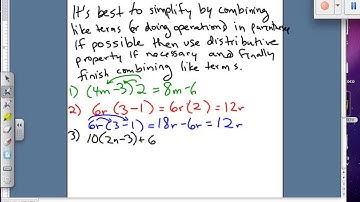 It's best to simplify by combining
like terms (or doing operation) in parenthese
if possible then use distributive
property if necessary and finally
finish combining like terms.
1) (4m-3)2 = 8m-6
2) 6r(3-1) = 6r(2) = 12r
6r(3-1) = 18r-6r = 12r
3) 10(2n-3)+6